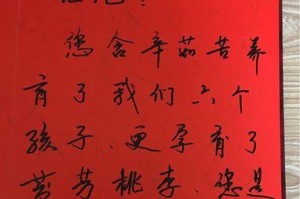 您含辛茹苦养
育了我们六个
孩子、更孕育了
芬芳桃李、您是